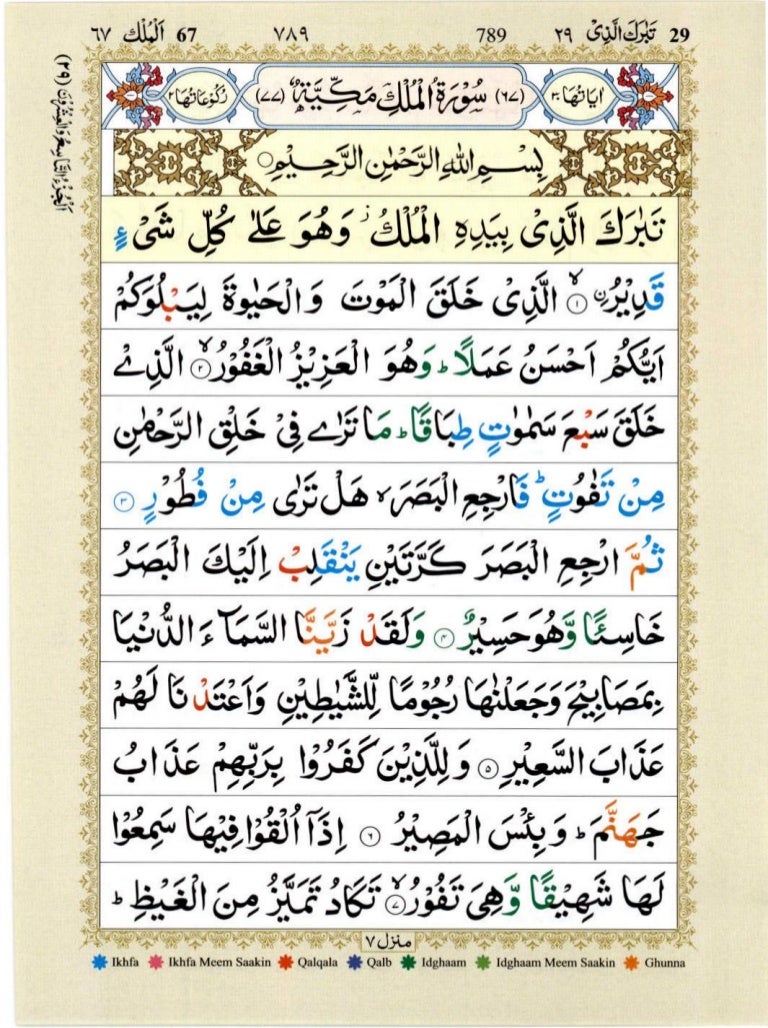 29 تَبٰرَكَ الَّذِىْ ٢٩ 789 ٧٨٩ 67 اَلْمُلْك ٦٧
اٰيَاتُهَا ٣٠ (٦٧) سُوْرَةُ الْمُلْكِ مَكِّيَّةٌ (٧٧) رُكُوْعَاتُهَا ٢
بِسْمِ اللّٰهِ الرَّحْمٰنِ الرَّحِيْمِ
تَبٰرَكَ الَّذِىْ بِيَدِهِ الْمُلْكُ ز وَهُوَ عَلٰى كُلِّ شَىْءٍ
قَدِيْرُ ۨ ۙ ١ الَّذِىْ خَلَقَ الْمَوْتَ وَالْحَيٰوةَ لِيَبْلُوَكُمْ
اَيُّكُمْ اَحْسَنُ عَمَلًا ؕ وَهُوَ الْعَزِيْزُ الْغَفُوْرُ ۙ ٢ الَّذِىْ
خَلَقَ سَبْعَ سَمٰوٰتٍ طِبَاقًا ؕ مَا تَرٰى فِىْ خَلْقِ الرَّحْمٰنِ
مِنْ تَفٰوُتٍ ؕ فَارْجِعِ الْبَصَرَ ۙ هَلْ تَرٰى مِنْ فُطُوْرٍ ٣
ثُمَّ ارْجِعِ الْبَصَرَ كَرَّتَيْنِ يَنْقَلِبْ اِلَيْكَ الْبَصَرُ
خَاسِئًا وَّهُوَ حَسِيْرٌ ٤ وَلَقَدْ زَيَّنَّا السَّمَآءَ الدُّنْيَا
بِمَصَابِيْحَ وَجَعَلْنٰهَا رُجُوْمًا لِّلشَّيٰطِيْنِ وَاَعْتَدْنَا لَهُمْ
عَذَابَ السَّعِيْرِ ٥ وَلِلَّذِيْنَ كَفَرُوْا بِرَبِّهِمْ عَذَابُ
جَهَنَّمَ ؕ وَبِئْسَ الْمَصِيْرُ ٦ اِذَاۤ اُلْقُوْا فِيْهَا سَمِعُوْا
لَهَا شَهِيْقًا وَّهِىَ تَفُوْرُ ۙ ٧ تَكَادُ تَمَيَّزُ مِنَ الْغَيْظِ ؕ
منزل ٧
Ikhfa Ikhfa Meem Saakin Qalqala Qalb Idghaam Idghaam Meem Saakin Ghunna
اَلْجُزْءُ التَّاسِعُ وَالْعِشْرُوْنَ (٢٩)